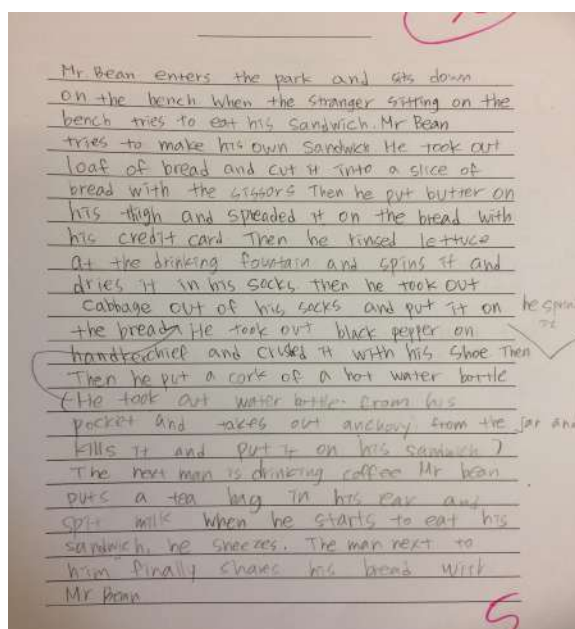 Mr. Bean enters the park and sits down
on the bench. When the stranger sitting on the
bench tries to eat his sandwich. Mr Bean
tries to make his own sandwich He took out
loaf of bread and cut it into a slice of
bread with the scissors Then he put butter on
his thigh and spreaded it on the bread with
his credit card Then he rinsed lettuce
at the drinking fountain and spins it and
dries it in his socks. then he took out
cabbage out of his socks and put it on
the bread He took out black pepper on
handkerchief and crused it with his shoe Then
Then he put a cork of a hot water bottle
He took out water bottle from his
pocket and takes out anchovy from the jar and
kills it and put it on his sandwich
The next man is drinking coffee Mr bean
puts a tea bag in his ear and
spit milk When he starts to eat his
sandwich, he sneezes. The man next to
him finally shares his bread with
Mr Bean
5